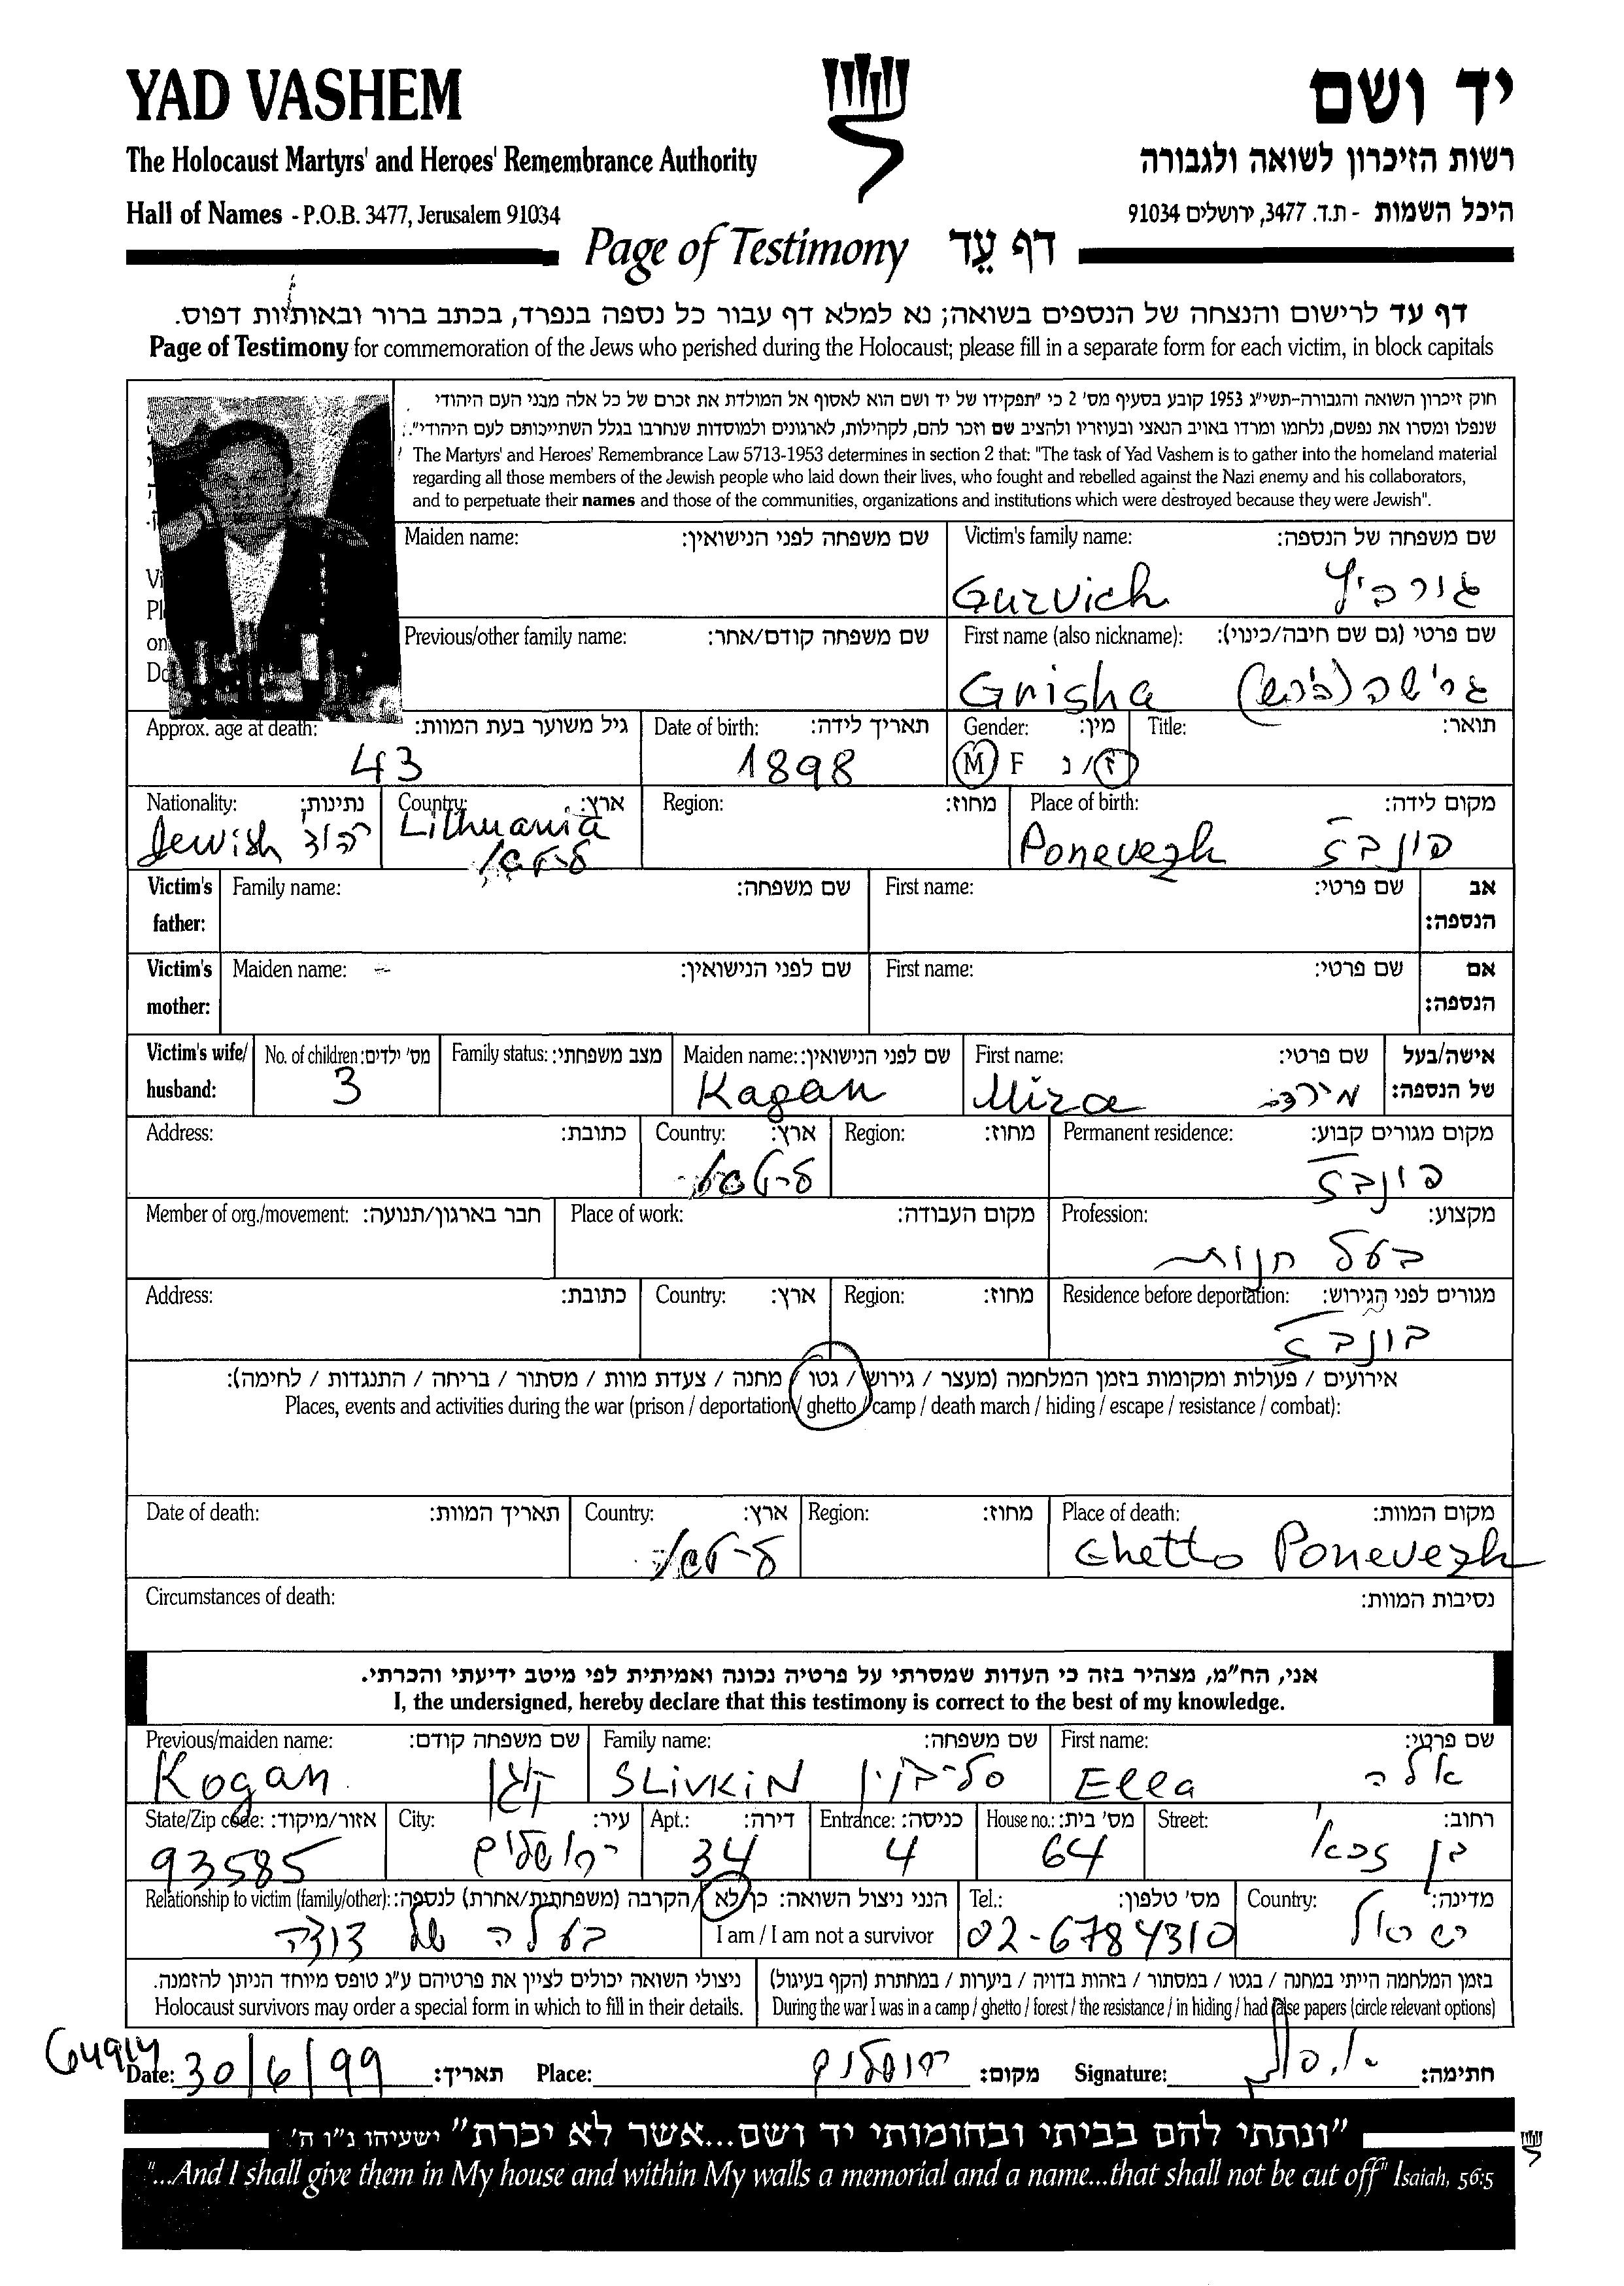 YAD VASHEM
יד ושם
The Holocaust Martyrs' and Heroes' Remembrance Authority
רשות הזיכרון לשואה ולגבורה
Hall of Names - P.O.B. 3477, Jerusalem 91034
היכל השמות - ת.ד. 3477, ירושלים 91034
Page of Testimony דף עֵד
דף עד לרישום והנצחה של הנספים בשואה; נא למלא דף עבור כל נספה בנפרד, בכתב ברור ובאותיות דפוס.
Page of Testimony for commemoration of the Jews who perished during the Holocaust; please fill in a separate form for each victim, in block capitals
חוק זיכרון השואה והגבורה-תשי"ג 1953 קובע בסעיף מס' 2 כי "תפקידו של יד ושם הוא לאסוף אל המולדת את זכרם של כל אלה מבני העם היהודי
שנפלו ומסרו את נפשם, נלחמו ומרדו באויב הנאצי ובעוזריו ולהציב שם וזכר להם, לקהילות, לארגונים ולמוסדות שנחרבו בגלל השתייכותם לעם היהודי".
The Martyrs' and Heroes' Remembrance Law 5713-1953 determines in section 2 that: "The task of Yad Vashem is to gather into the homeland material
regarding all those members of the Jewish people who laid down their lives, who fought and rebelled against the Nazi enemy and his collaborators,
and to perpetuate their names and those of the communities, organizations and institutions which were destroyed because they were Jewish".
Maiden name: שם משפחה לפני הנישואין:
Victim's family name: שם משפחה של הנספה:
Gurvich גורביץ
Previous/other family name: שם משפחה קודם/אחר:
First name (also nickname): שם פרטי (גם שם חיבה/כינוי):
Grisha גרישה
Approx. age at death: גיל משוער בעת המוות:
43
Date of birth: תאריך לידה:
1898
Gender: מין:
M F ז/נ
Title: תואר:
Nationality: נתינות:
Jewish יהודי
Country: ארץ:
Lithuania
ליטא
Region: מחוז:
Place of birth: מקום לידה:
Ponevezh פונבז
Victim's father: Family name: שם משפחה: First name: שם פרטי: אב הנספה:
Victim's mother: Maiden name: שם לפני הנישואין: First name: שם פרטי: אם הנספה:
Victim's wife/ husband:
No. of children: מס' ילדים:
3
Family status: מצב משפחתי:
Maiden name: שם לפני הנישואין:
Kagan
First name: שם פרטי:
Mira מירה
אישה/בעל של הנספה:
Address: כתובת:
Country: ארץ:
ליטא
Region: מחוז:
Permanent residence: מקום מגורים קבוע:
פונבז
Member of org./movement: חבר בארגון/תנועה:
Place of work: מקום העבודה:
Profession: מקצוע:
בעל חנות
Address: כתובת:
Country: ארץ:
Region: מחוז:
Residence before deportation: מגורים לפני הגירוש:
פונבז
אירועים / פעולות ומקומות בזמן המלחמה (מעצר / גירוש / גטו / מחנה / צעדת מוות / מסתור / בריחה / התנגדות / לחימה):
Places, events and activities during the war (prison / deportation / ghetto / camp / death march / hiding / escape / resistance / combat):
Date of death: תאריך המוות:
Country: ארץ:
ליטא
Region: מחוז:
Place of death: מקום המוות:
Ghetto Ponevezh
Circumstances of death: נסיבות המוות:
אני, הח"מ, מצהיר בזה כי העדות שמסרתי על פרטיה נכונה ואמיתית לפי מיטב ידיעתי והכרתי.
I, the undersigned, hereby declare that this testimony is correct to the best of my knowledge.
Previous/maiden name: שם משפחה קודם:
Kogan קוגן
Family name: שם משפחה:
SLIVKIN סליבקין
First name: שם פרטי:
Ella אלה
State/Zip code: אזור/מיקוד:
93585
City: עיר:
ירושלים
Apt.: דירה:
34
Entrance: כניסה:
4
House no.: מס' בית:
64
Street: רחוב:
בן זכאי
Relationship to victim (family/other): הקרבה (משפחתית/אחרת) לנספה:
בעלה של דודה
הנני ניצול השואה: כן/לא
I am / I am not a survivor
Tel.: מס' טלפון:
02-6784310
Country: מדינה:
ישראל
ניצולי השואה יכולים לציין את פרטיהם ע"ג טופס מיוחד הניתן להזמנה.
Holocaust survivors may order a special form in which to fill in their details.
בזמן המלחמה הייתי במחנה / בגטו / במסתור / בזהות בדויה / ביערות / במחתרת (הקף בעיגול)
During the war I was in a camp / ghetto / forest / the resistance / in hiding / had false papers (circle relevant options)
Date: 30/6/99 תאריך:
Place: ירושלים מקום:
Signature: חתימה:
"ונתתי להם בביתי ובחומותי יד ושם...אשר לא יכרת" ישעיהו נ"ו ה'
"...And I shall give them in My house and within My walls a memorial and a name...that shall not be cut off" Isaiah, 56:5